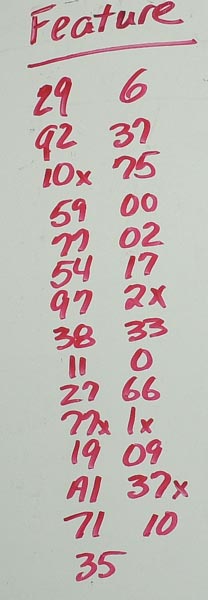 Feature
29 6
92 37
10x 75
59 00
77 02
54 17
97 2x
38 33
11 0
27 66
77x 1x
19 09
A1 37x
71 10
35